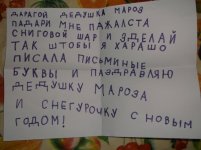 ДАРАГОЙ ДЕДУШКА МАРОЗ
ПАДАРИ МНЕ ПАЖАЛСТА
СНИГОВОЙ ШАР И ЗДЕЛАЙ
ТАК ШТОБЫ Я ХАРАШО
ПИСАЛА ПИСЬМИНЫЕ
БУКВЫ И ПАЗДРАВЛЯЮ
ДЕДУШКУ МАРОЗА
И СНЕГУРОЧКУ С НОВЫМ
ГОДОМ!